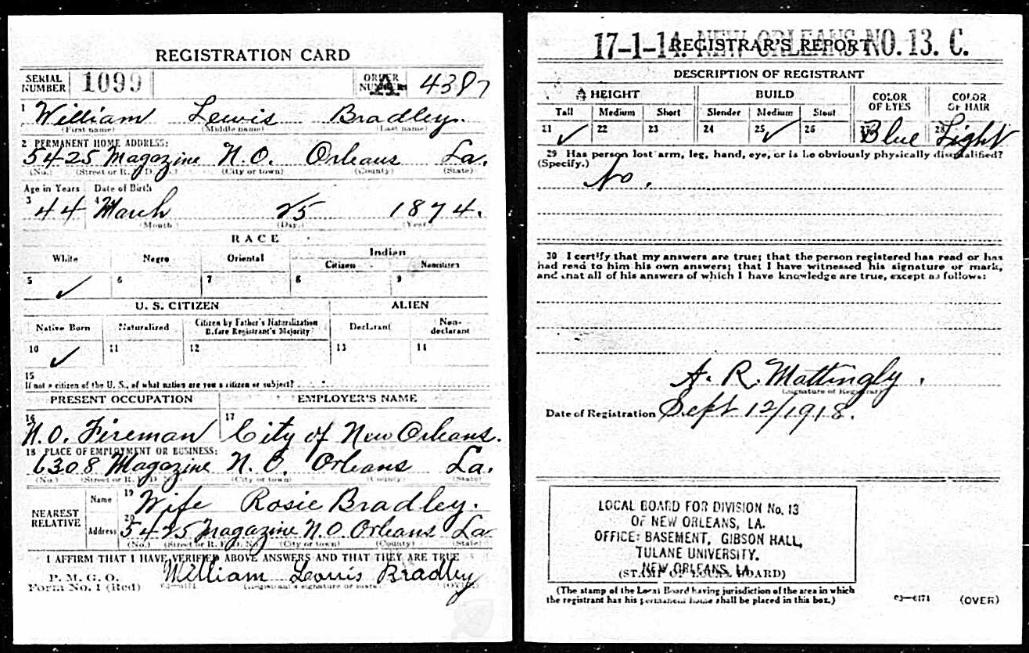 REGISTRATION CARD
SERIAL NUMBER 1099 ORDER NUMBER 4387
1 William Lewis Bradley.
(First name) (Middle name) (Last name)
2 PERMANENT HOME ADDRESS:
5425 Magazine N.O. Orleans La.
(No.) (Street or R. F. D. No.) (City or town) (County) (State)
Age in Years Date of Birth
3 44 4 March 25 1874.
(Month) (Day) (Year)
RACE
White Negro Oriental Indian
Citizen Noncitizen
5 ✓ 6 7 8 9
U. S. CITIZEN ALIEN
Native Born Naturalized Citizen by Father's Naturalization Before Registrant's Majority Declarant Non-declarant
10 ✓ 11 12 13 14
15
If not a citizen of the U. S., of what nation are you a citizen or subject?
PRESENT OCCUPATION EMPLOYER'S NAME
16 N.O. Fireman 17 City of New Orleans.
18 PLACE OF EMPLOYMENT OR BUSINESS:
6308 Magazine N.O. Orleans La.
(No.) (Street or R. F. D. No.) (City or town) (County) (State)
NEAREST RELATIVE
Name 19 Wife Rosie Bradley.
Address 20 5425 Magazine N.O. Orleans La
(No.) (Street or R. F. D. No.) (City or town) (County) (State)
I AFFIRM THAT I HAVE VERIFIED ABOVE ANSWERS AND THAT THEY ARE TRUE
P. M. G. O.
Form No. 1 (Red) William Louis Bradley
(Registrant's signature or mark) (OVER)
17-1-14. NEW ORLEANS NO. 13. C.
REGISTRAR'S REPORT
DESCRIPTION OF REGISTRANT
HEIGHT BUILD COLOR OF EYES COLOR OF HAIR
Tall Medium Short Slender Medium Stout
21 ✓ 22 23 24 25 ✓ 26 27 Blue 28 Light
29 Has person lost arm, leg, hand, eye, or is he obviously physically disqualified?
(Specify.)
No.
30 I certify that my answers are true; that the person registered has read or has
had read to him his own answers; that I have witnessed his signature or mark,
and that all of his answers of which I have knowledge are true, except as follows:
A. R. Mattingly.
(Signature of Registrar)
Date of Registration Sept 12/1918.
LOCAL BOARD FOR DIVISION No. 13
OF NEW ORLEANS, LA.
OFFICE: BASEMENT, GIBSON HALL,
TULANE UNIVERSITY.
NEW ORLEANS, LA.
(STAMP OF LOCAL BOARD)
(The stamp of the Local Board having jurisdiction of the area in which
the registrant has his permanent home shall be placed in this box.)
03-6171 (OVER)